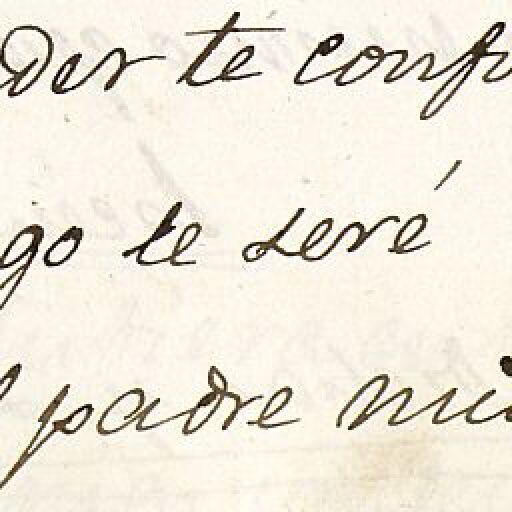 der te confu
go te seré
padre mi